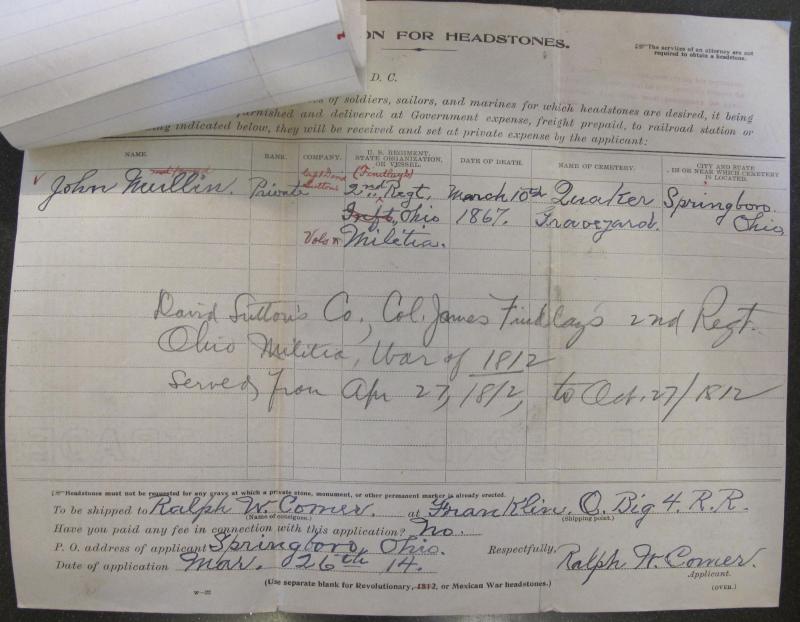 ON FOR HEADSTONES.
☞ The services of an attorney are not
required to obtain a headstone.
D. C.
es of soldiers, sailors, and marines for which headstones are desired, it being
urnished and delivered at Government expense, freight prepaid, to railroad station or
ing indicated below, they will be received and set at private expense by the applicant:
NAME. RANK. COMPANY. U. S. REGIMENT, STATE ORGANIZATION, OR VESSEL. DATE OF DEATH. NAME OF CEMETERY. CITY AND STATE IN OR NEAR WHICH CEMETERY IS LOCATED.
Capt David (Findlay's)
John Mullin. Private Sutton's 2nd Regt, March 10th Quaker Springboro
Inft, Ohio 1867. Graveyard. Ohio
Vols & Militia.
David Sutton's Co., Col. James Findlay's 2nd Regt.
Ohio Militia, War of 1812
Served from Apr 27, 1812, to Oct. 27/1812
☞ Headstones must not be requested for any grave at which a private stone, monument, or other permanent marker is already erected.
To be shipped to Ralph W. Comer. at Franklin. O. Big 4. R. R.
(Name of consignee.) (Shipping point.)
Have you paid any fee in connection with this application? No.
P. O. address of applicant Springboro, Ohio. Respectfully,
Date of application Mar. 26th 14. Ralph W. Comer.
Applicant.
(Use separate blank for Revolutionary, 1812, or Mexican War headstones.)
W—22 (OVER.)